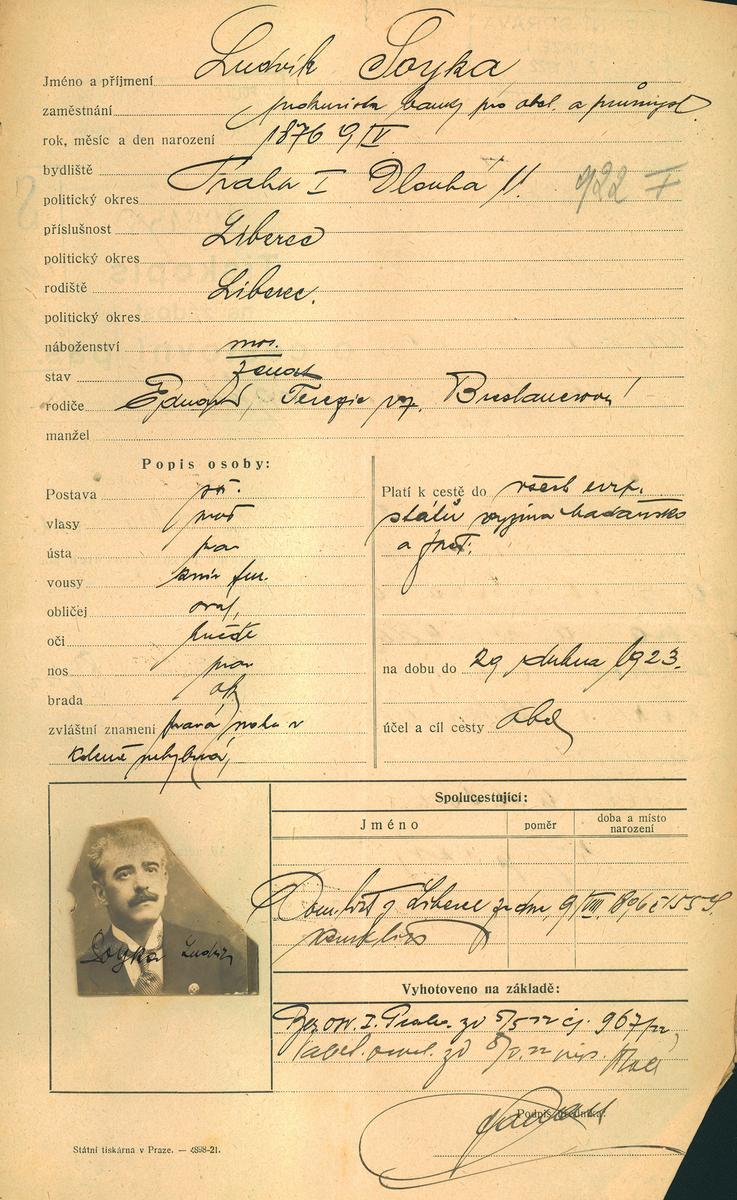 Jméno a příjmení Ludvík Soyka
zaměstnání prokurista banky pro obch. a průmysl
rok, měsíc a den narození 1876 9/IV
bydliště Praha I Dlouhá 11. 922 I
politický okres
příslušnost Liberec
politický okres
rodiště Liberec.
politický okres
náboženství mos.
stav ženat
rodiče Eduard, Terezie roz. Breslauerová
manžel
Popis osoby:
Postava stř.
vlasy
ústa prav
vousy knír
obličej ovál,
oči hnědé
nos prav
brada
zvláštní znamení pravá noha v
koleně nehybná,
Platí k cestě do všech evr.
států vyjma Maďarsko
a
na dobu do 29 dubna 1923.
účel a cíl cesty obch
Soyka Ludvík
Spolucestující:
Jméno
poměr
doba a místo narození
Dom. list z Liberce ze dne 9/VIII
Vyhotoveno na základě:
I. Praha zd 5/5 22 čj. 967/22
Podpis úředníka:
Státní tiskárna v Praze. — 4898-21.